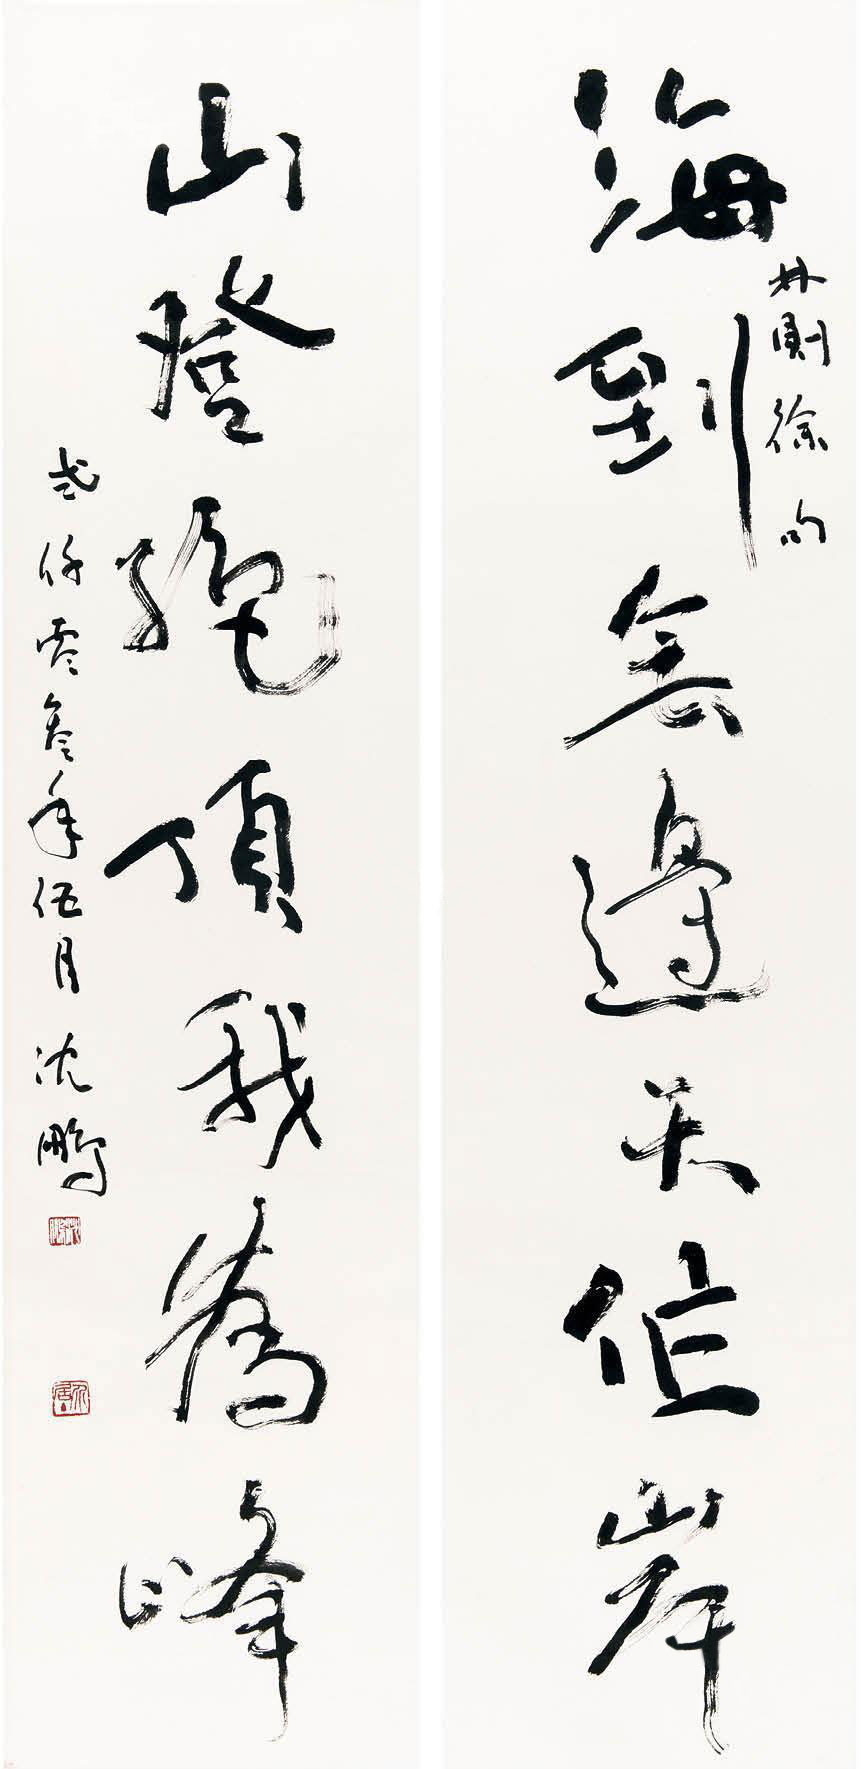 海到無邊天作岸
林則徐句
山登絶頂我為峰
弍仟零叁年伍月 沈鵬